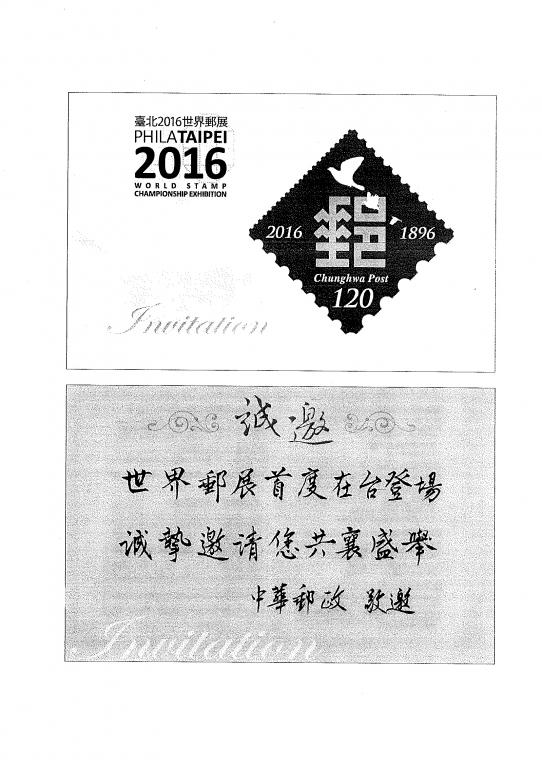 臺北2016世界郵展
PHILATAIPEI
2016
WORLD STAMP
CHAMPIONSHIP EXHIBITION
2016 郵 1896
Chunghwa Post
120
Invitation
誠邀
世界郵展首度在台登場
誠摯邀請您共襄盛舉
中華郵政 敬邀
Invitation